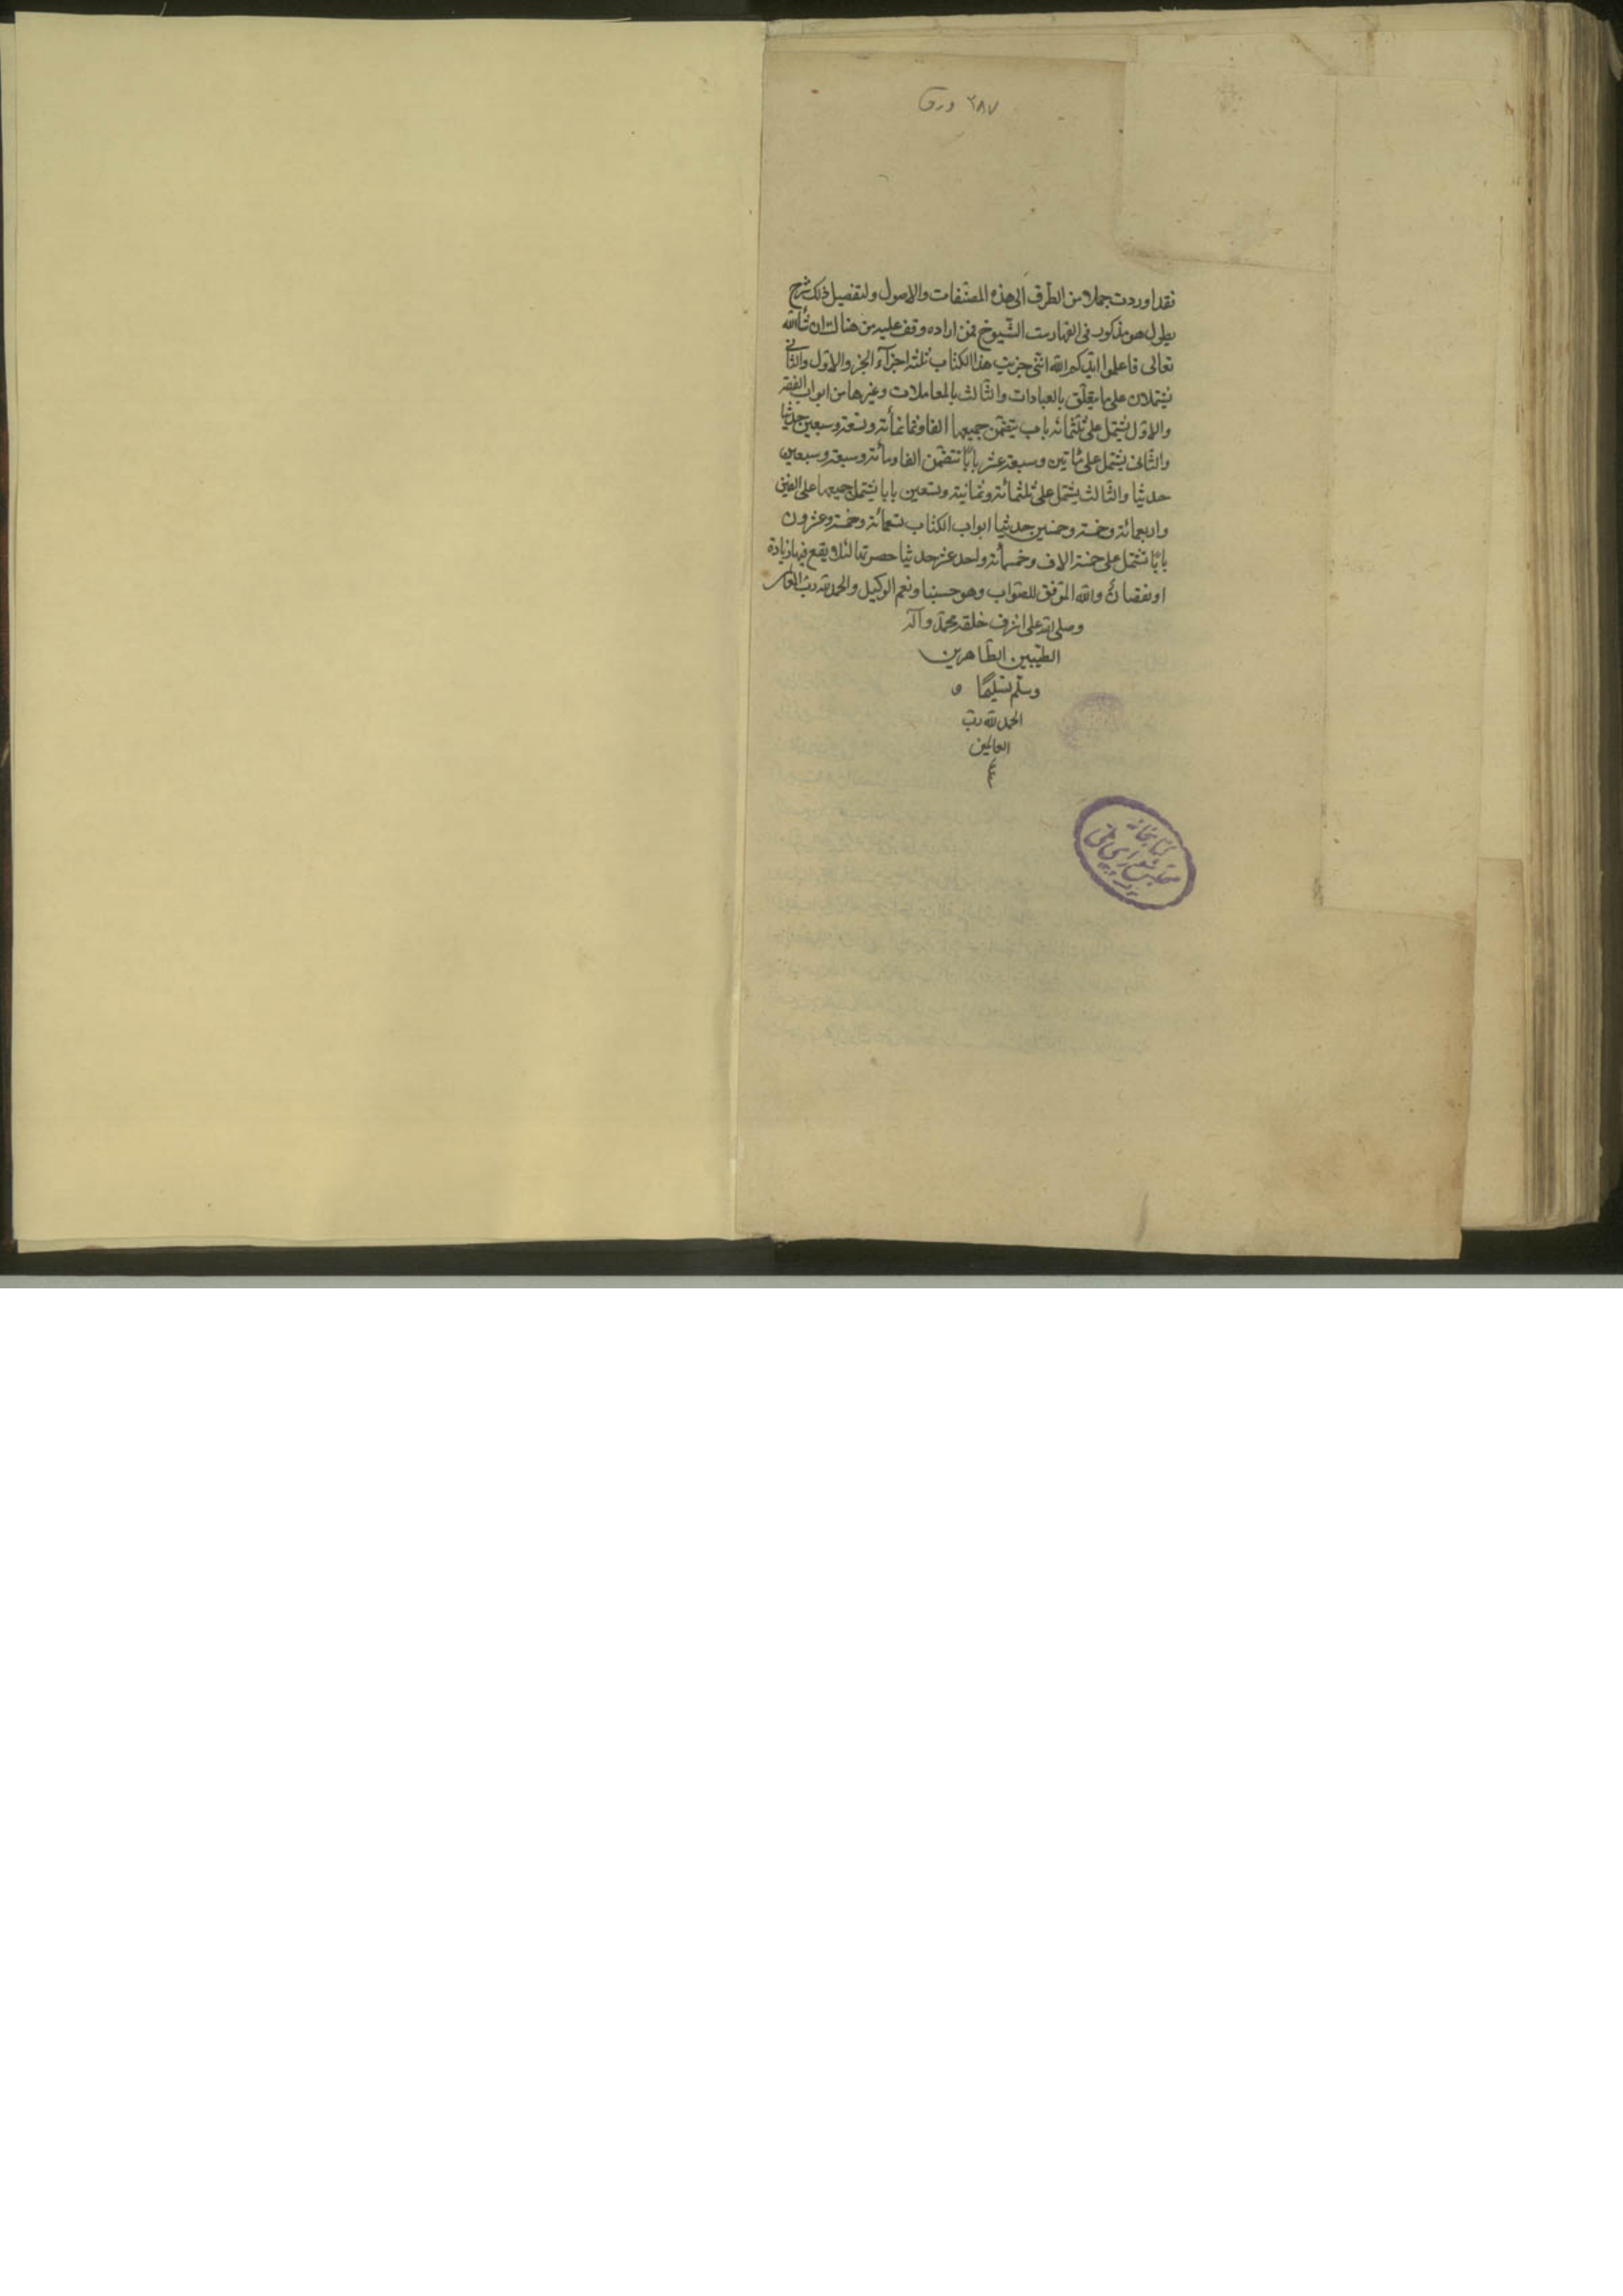 ٣٨٧ ورق
فقد اوردت جملا من الطرق الى هذه المصنفات والاصول ولتفصيل ذلك شرح
يطول هو مذكور فى الفهارست الشيوخ فمن اراده وقف عليه من هنالك ان شاء الله
تعالى فاعلموا ايدكم الله انى جزيت هذا الكتاب ثلثة اجزآء الجزء والاول والثانى
يشتملان على ما يتعلق بالعبادات والثالث بالمعاملات وغيرها من ابواب الفقه
والاول يشتمل على ثلثمائه باب يتضمن جميعها الفا وثمانمأئة وتسعة وسبعين حديثا
والثانى يشتمل على مأتين وسبعة عشر بابًا تتضمن الفا ومائة وسبعة وسبعين
حديثا والثالث يشتمل على ثلثمائة وثمانية وتسعين بابا يشتمل جميعها على الفين
واربعمائة وخمسة وخمسين حديثا ابواب الكتاب تسعمائة وخمسة وعشرون
بابًا تشتمل على خمسة الاف وخمسمأئة واحد عشر حديثا حصرتها لئلا يقع فيها زيادة
او نقصان والله الموفق للصواب وهو حسبنا ونعم الوكيل والحمد لله رب العالمين
وصلى الله على اشرف خلقه محمد وآله
الطيبين الطاهرين
وسلم تسليمًا و
الحمد لله رب
العالمين
كتابخانه
مجلس شوراى ملى